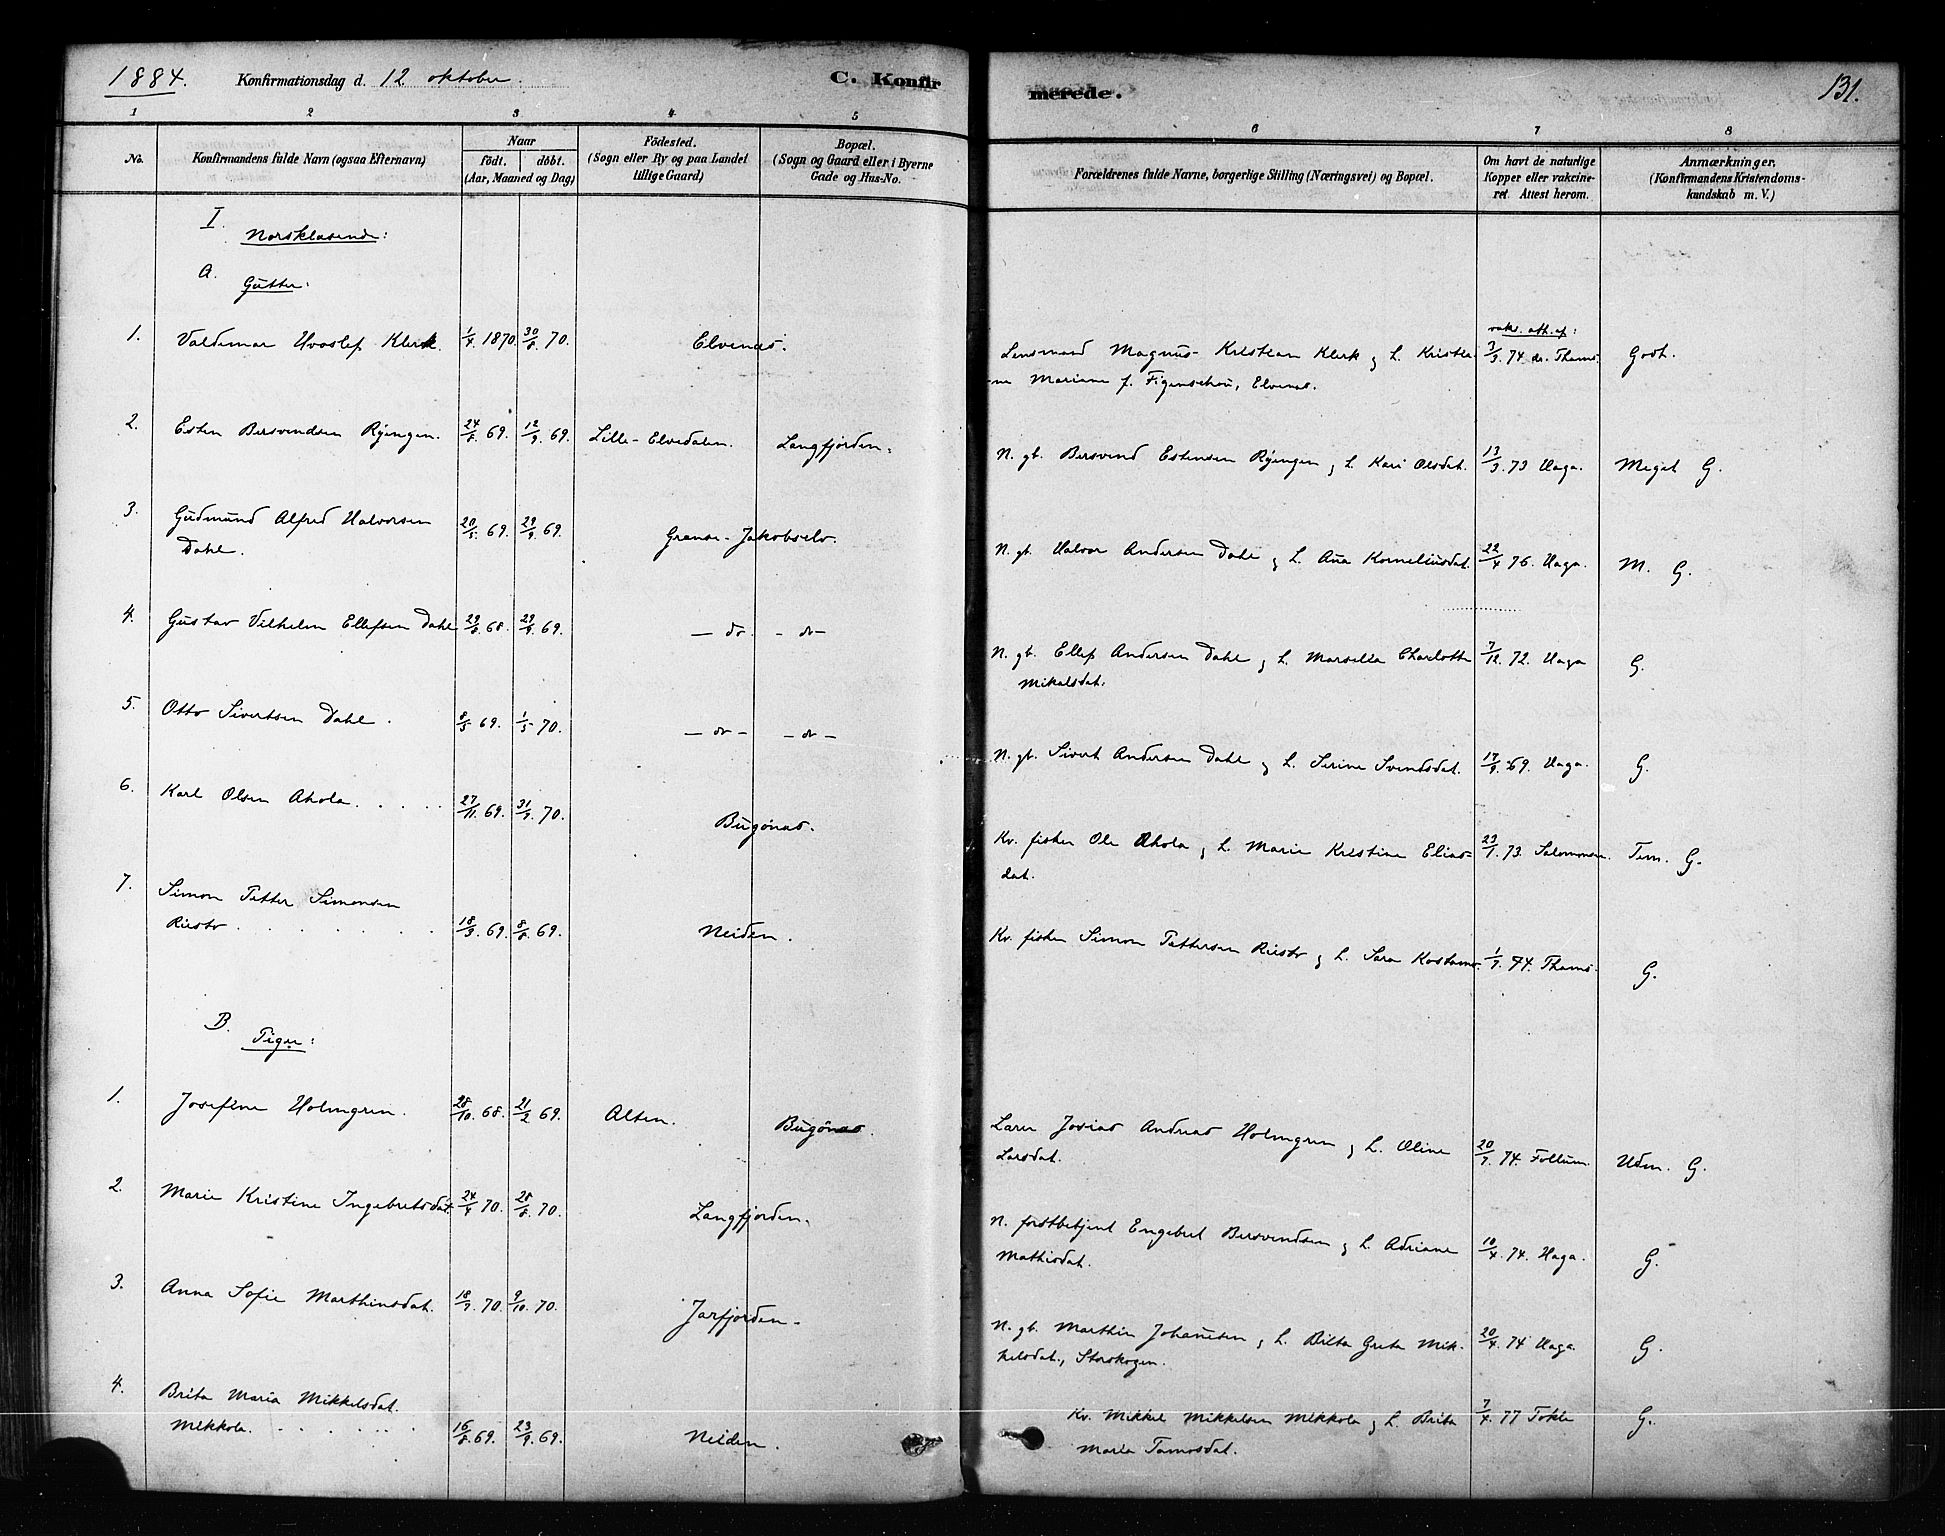 1884. Konfirmationsdag d. 12 oktober. C. Konfirmerede. 131.
1 2 3 4 5 6 7 8
No. Konfirmandens fulde Navn (ogsaa Efternavn) Naar födt. döbt. (Aar, Maaned og Dag) Födested. (Sogn eller By og paa Landet tillige Gaard) Bopæl. (Sogn og Gaard eller i Byerne Gade og Hus-No. Forældrenes fulde Navne, borgerlige Stilling (Næringsvei) og Bopæl. Om havt de naturlige Kopper eller vakcineret. Attest herom. Anmærkninger. (Konfirmandens Kristendomskundskab m. V.)
I. Norsklæsende:
A. Gutter:
vaks. att. af:
1. Valdemar Hvoslef Klerk 1/4 1870. 30/8 70. Elvenæs. Lensmand Magnus Kristian Klerk g L. Kristia- 3/9. 74 dr. Thams. Godt.
ne Mariane f. Figenschou, Elvenæs.
2. Esten Bersvendsen Ryengen. 24/8 69. 12/9 69. Lille-Elvedalen. Langfjorden. N. gb. Bersvend Estensen Ryengen g L. Kari Olsdat. 13/3. 73 Haga. Meget G.
3. Gudmund Alfred Halvorsen
Dahl. 20/5 69. 29/9 69. Grense-Jakobselv. N. gb. Halvor Andersen Dahl g L. Ana Korneliusdat. 22/4 76. Haga. M. G.
4. Gustav Vilhelm Ellefsen Dahl 29/8 68. 29/9 69. - do - - do - N. gb. Ellef Andersen Dahl g L. Marsella Charlotte 7/12. 72. Haga G.
Mikalsdat.
5. Otto Sivertsen Dahl. 8/5 69. 1/5 70. - do - - do - N. gb. Sivert Andersen Dahl g L. Serine Svendsdat. 17/9. 69. Haga. G.
6. Karl Olsen Ahola. . . . 27/11 69. 31/7 70. Bugönæs. Kv. fisker Ole Ahola g L. Marie Kristine Elias- 23/7. 73. Salomonsen. Tem. G.
dat.
7. Simon Petter Simonsen
Riesto . . . . . 18/3 69. 8/8 69. Neiden. Kv. fisker Simon Pettersen Riesto g L. Sara Kostamo. 1/7. 74. Thams. G.
B. Piger:
1. Josefine Holmgren. 28/10 68. 21/2 69. Alten. Bugönæs. Lærer Josias Andreas Holmgren g L. Oline 20/7. 74. Follum. Udm. G.
Larsdat.
2. Marie Kristine Ingebretsdat. 24/4 70. 28/8 70. Langfjorden. N. forstbetjent Engebret Bersvendsen g L. Adriane 10/4 74. Haga. G.
Mathisdat.
3. Anna Sofie Marthinsdat. 18/7 70. 9/10 70. Jarfjorden. N. gb. Marthin Johannesen g L. Brita Greta Mik- 20/4. 74 Haga G.
kelsdat., Storskogen.
4. Brita Maria Mikkelsdat.
Mikkola. . . . . 16/8 69. 23/9 69. Neiden. Kv. Mikkel Mikkelsen Mikkola g L. Brita 7/4. 77 Tokle G.
Maria Tomasdat.